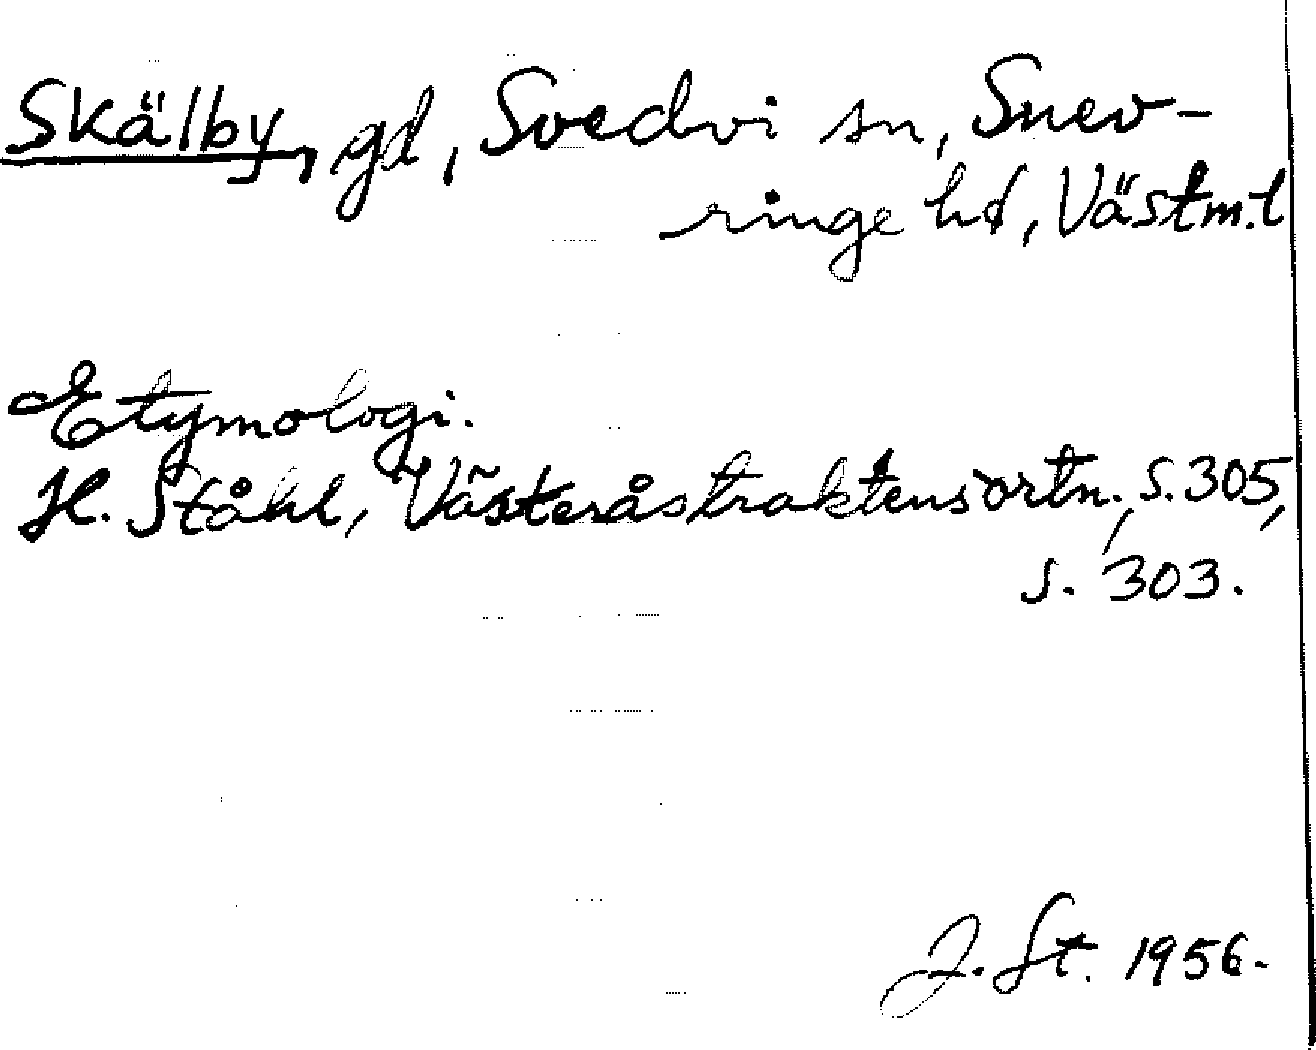 Skälby, gd, Svedvi sn, Snev-
ringe hd, Västm.l
Etymologi.
H. Ståhl, Västeråstraktens ortn., s. 305,
s. 303.
J. St. 1956.